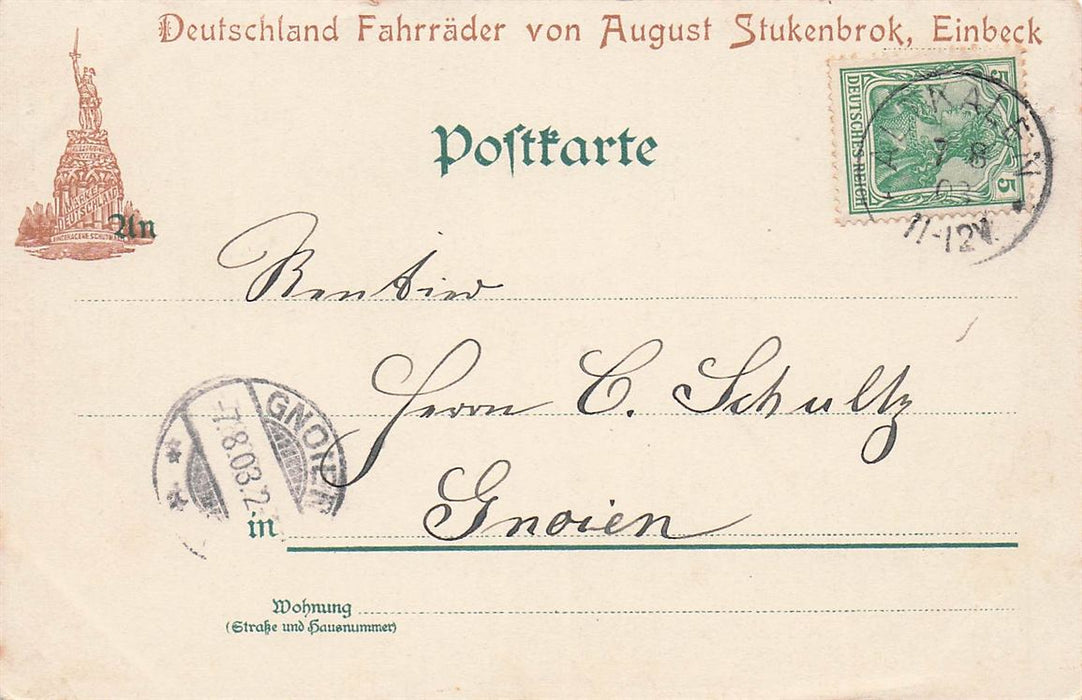 Deutschland Fahrräder von August Stukenbrok, Einbeck
MARKE
DEUTSCHLAND
Postkarte
DEUTSCHES REICH
5
5
ALTKALEN
7 8
03
11-12V.
An
Rentier
Herrn C. Schultz
GNOIEN
-7.8.03.2-
in Gnoien
Wohnung
(Straße und Hausnummer)